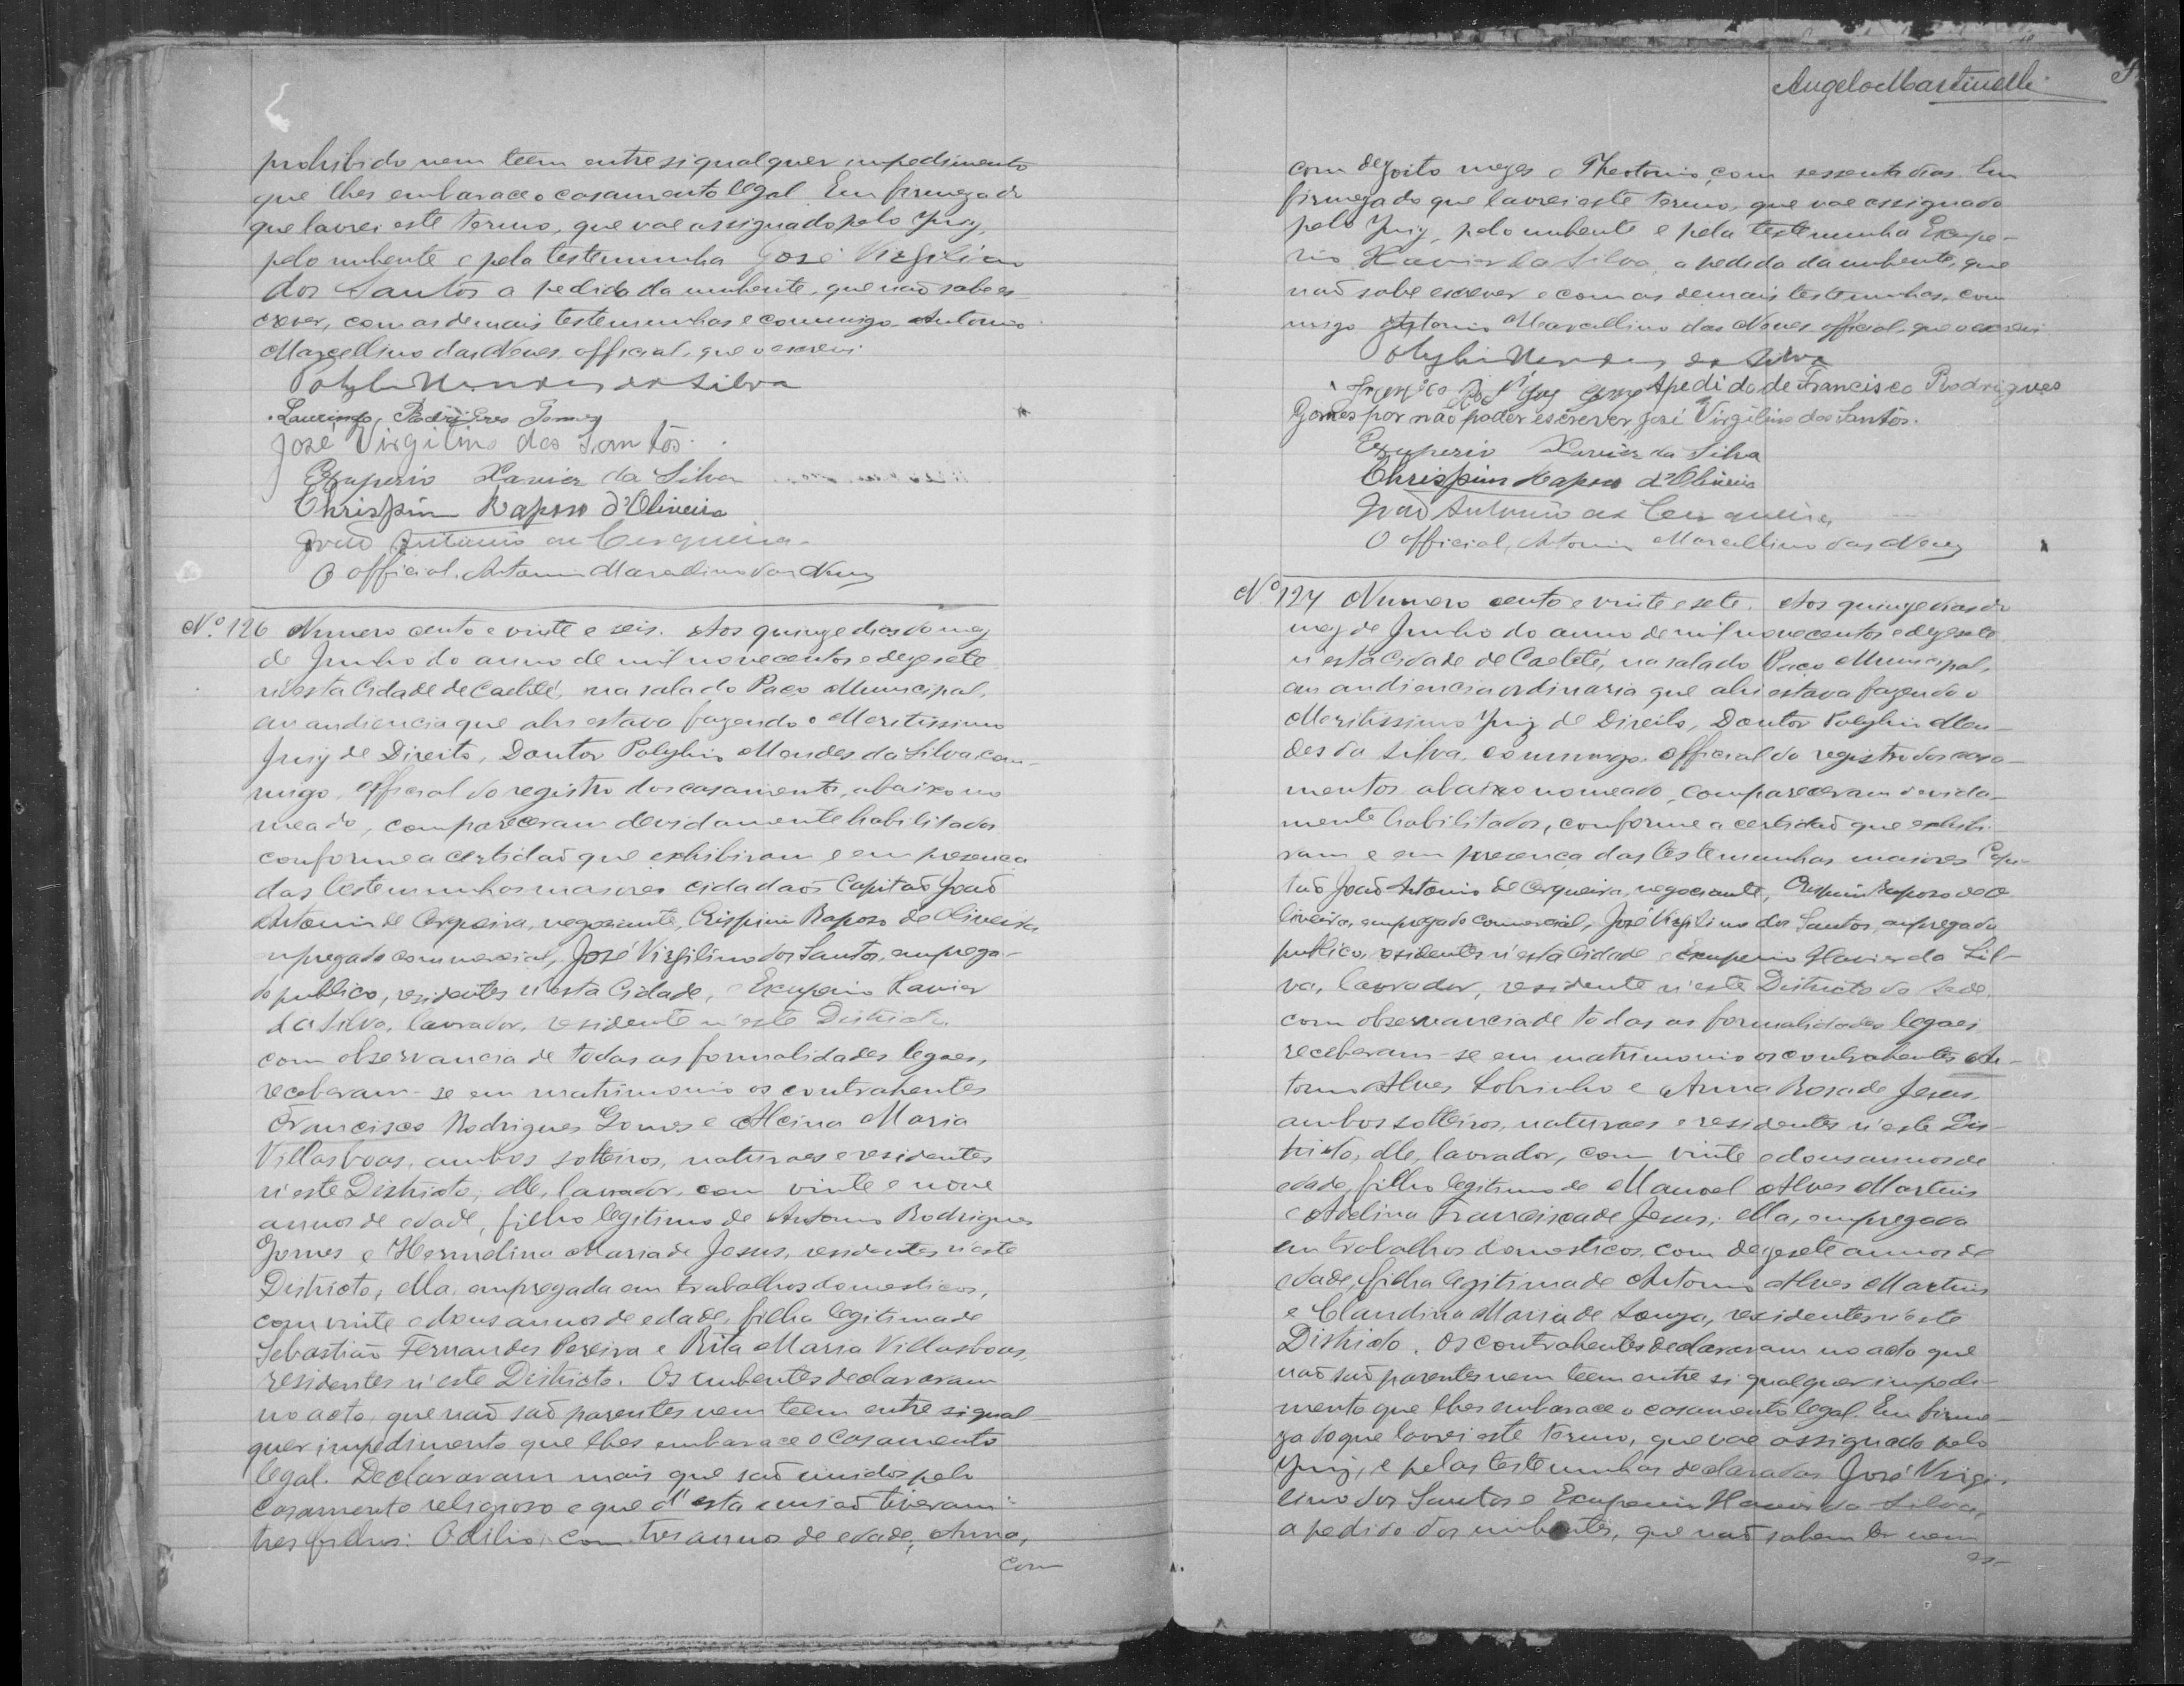 prohibido nem teem entre si qualquer impedimento
que lhes embarace o casamento legal. Em firmeza do
que lavrei este termo, que vae assignado pelo Juiz,
pelo nubente e pela testemunha José Virgilino
dos Santos a pedido da nubente, que naõ sabe es
crever, com as demais testemunhas e commigo Antonio
Marcellino das Neves, official, que o escrevi
Polybio Mendes da Silva
Laurindo Rodrigues Gomes
José Virgilino dos Santos
Exuperio Xavier da Silva
Chrispim Raposo d'Oliveira
Joaõ Antonio de Cerqueira
O official, Antonio Marcellino das Neves
Nº 126 Numero cento e vinte e seis. Aos quinze dias do mez
de Junho do anno de mil novecentos e dezesete
n'esta Cidade de Caeteté, na sala do Paço Municipal,
em audiencia que ahi estava fazendo o Meritissimo
Juiz de Direito, Doutor Polybio Mendes da Silva, com-
migo, official do registro dos casamentos, abaixo no
meado, compareceram devidamente habilitados
conforme a certidaõ que exhibiram e em presença
das testemunhas maiores cidadaõs Capitaõ Joaõ
Antonio de Cerqueira, negociante, Crispim Raposo de Oliveira,
empregado commercial, José Virgilino dos Santos, emprega-
do publico, residentes n'esta Cidade, e Exuperio Xavier
da Silva, lavrador, residente n'este Districto,
com observancia de todas as formalidades legaes,
receberam-se em matrimonio os contrahentes
Francisco Rodrigues Gomes e Alcina Maria
Villasboas, ambos solteiros, naturaes e residentes
n'este Districto, elle, lavrador, com vinte e nove
annos de edade, filho legitimo de Antonio Rodrigues
Gomes e Hermelina Maria de Jesus, residentes n'este
Districto; ella, empregada em trabalhos domesticos,
com vinte e dous annos de edade, filha legitima de
Sebastiaõ Fernandes Pereira e Rita Maria Villasboas,
residentes n'este Districto. Os nubentes declararam
no acto, que naõ saõ parentes nem teem entre si qual
quer impedimento que lhes embarace o casamento
legal. Declararam mais que saõ unidos pelo
casamento religioso e que d'esta uniaõ tiveram
tres filhos: Odilio, com tres annos de edade, Anna,
com
Angelo Martinelli
com dezoito mezes e Theotonio, com sessenta dias. Em
firmeza do que lavrei este termo, que vae assignado
pelo Juiz, pelo nubente e pela testemunha Exupe-
rio Xavier da Silva, a pedido da nubente, que
naõ sabe escrever e com as demais testemunhas, com
migo Antonio Marcellino das Neves, official, que o escrevi
Polybio Mendes da Silva
A pedido de Francisco Rodrigues
Gomes por não poder escrever José Virgilino dos Santos.
Exuperio Xavier da Silva
Chrispim Raposo d'Oliveira
Joaõ Antonio de Cerqueira
O official, Antonio Marcellino das Neves
Nº 127 Numero cento e vinte e sete. Aos quinze dias do
mez de Junho do anno de mil novecentos e dezesete
n'esta Cidade de Caeteté, na sala do Paço Municipal,
em audiencia ordinaria que ahi estava fazendo o
Meritissimo Juiz de Direito, Doutor Polybio Men-
des da Silva, commigo, official do registro dos casa-
mentos abaixo nomeado, compareceram devida-
mente habilitados, conforme a certidaõ que exhibi
ram e em presença das testemunhas maiores Capi-
taõ Joaõ Antonio de Cerqueira, negociante, Crispim Raposo de O
liveira, empregado comercial, José Virgilino dos Santos, empregado
publico, residentes n'esta Cidade e Exuperio Xavier da Sil-
va, lavrador, residente n'este Districto da Sede,
com observancia de todas as formalidades legaes
receberam-se em matrimonio os contrahentes An-
tonio Alves Sobrinho e Anna Rosa de Jesus,
ambos solteiros, naturaes e residentes n'este Dis-
tricto, elle, lavrador, com vinte e dous annos de
edade, filho legitimo de Manoel Alves Martins
e Avelina Francisca de Jesus; ella, empregada
em trabalhos domesticos, com dezesete annos de
edade, filha legitima de Antonio Alves Martins
e Claudina Maria de Souza, residentes n'este
Districto. Os contrahentes declararam no acto que
naõ saõ parentes nem teem entre si qualquer impedi-
mento que lhes embarace o casamento legal. Em firme-
za do que lavrei este termo, que vae assignado pelo
Juiz, e pelas testemunhas declaradas José Virgi-
lino dos Santos e Exuperio Xavier da Silva,
a pedido dos nubentes, que naõ sabem ler nem
es-